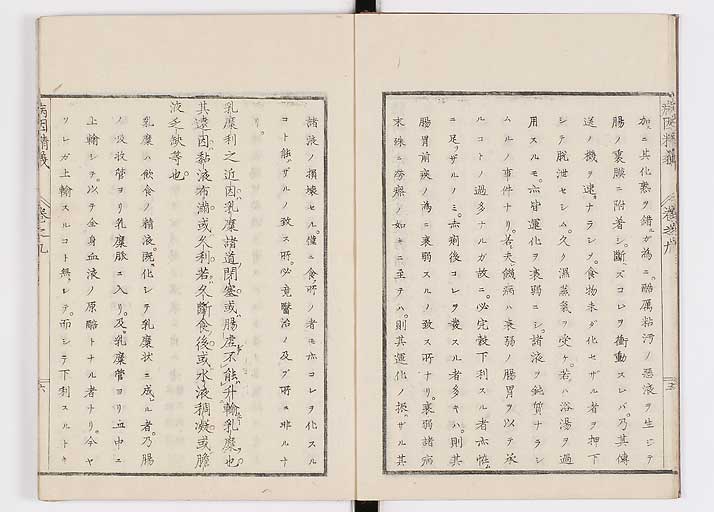 加ヘ其化熟ヲ錯ルガ爲ニ酷厲粘汚ノ惡液ヲ生ジテ
腸ノ裏膜ニ附着シ斷ヘズコレヲ衝動スレバ乃其傳
送ノ機ヲ速ナラシメ食物未ダ化セザル者ヲ押下
シテ脱泄セシム久ク濕蒸氣ヲ受ケ若ハ浴湯ヲ過
用スルモ亦皆運化ヲ衰弱ニシ諸液ヲ鈍質ナラシ
ムルノ事件ナリ若夫饑病ハ衰弱ノ腸胃ヲ以テ承
ルコトノ過多ナルガ故ニ必完穀下利スル者亦恠
ニ足ザルノミ亦痢後コレヲ發スル者多キハ則其
腸胃前疾ノ爲ニ衰弱スルノ致ス所ナリ衰弱諸病
末殊ニ癆瘵ノ如キニ至テハ則其運化ノ振ザル其
病因精義 卷之九 五
諸液ノ損壞セル僅ニ食所ノ者モ亦コレヲ化スル
コト能ハザルノ致ス所必竟醫治ノ及ブ所ニ非ルナ
リ
乳糜利之近因乳糜諸道閉塞或腸虚不能升輸乳糜也
其遠因黏液布滿或久利若久斷食後或水液稠凝或膽
液乏缺等也
乳糜ハ飲食ノ精液既ニ化シテ乳糜狀ニ成ル者乃腸
ノ吸收管ヨリ乳糜脈ニ入リ及乳糜管ヨリ血中ニ
上輸シテ以テ全身血液ノ原酷トナル者ナリ今ヤ
ソレガ上輸スルコト無シテ而シテ下利スルトキ
病因精義 卷之九 六